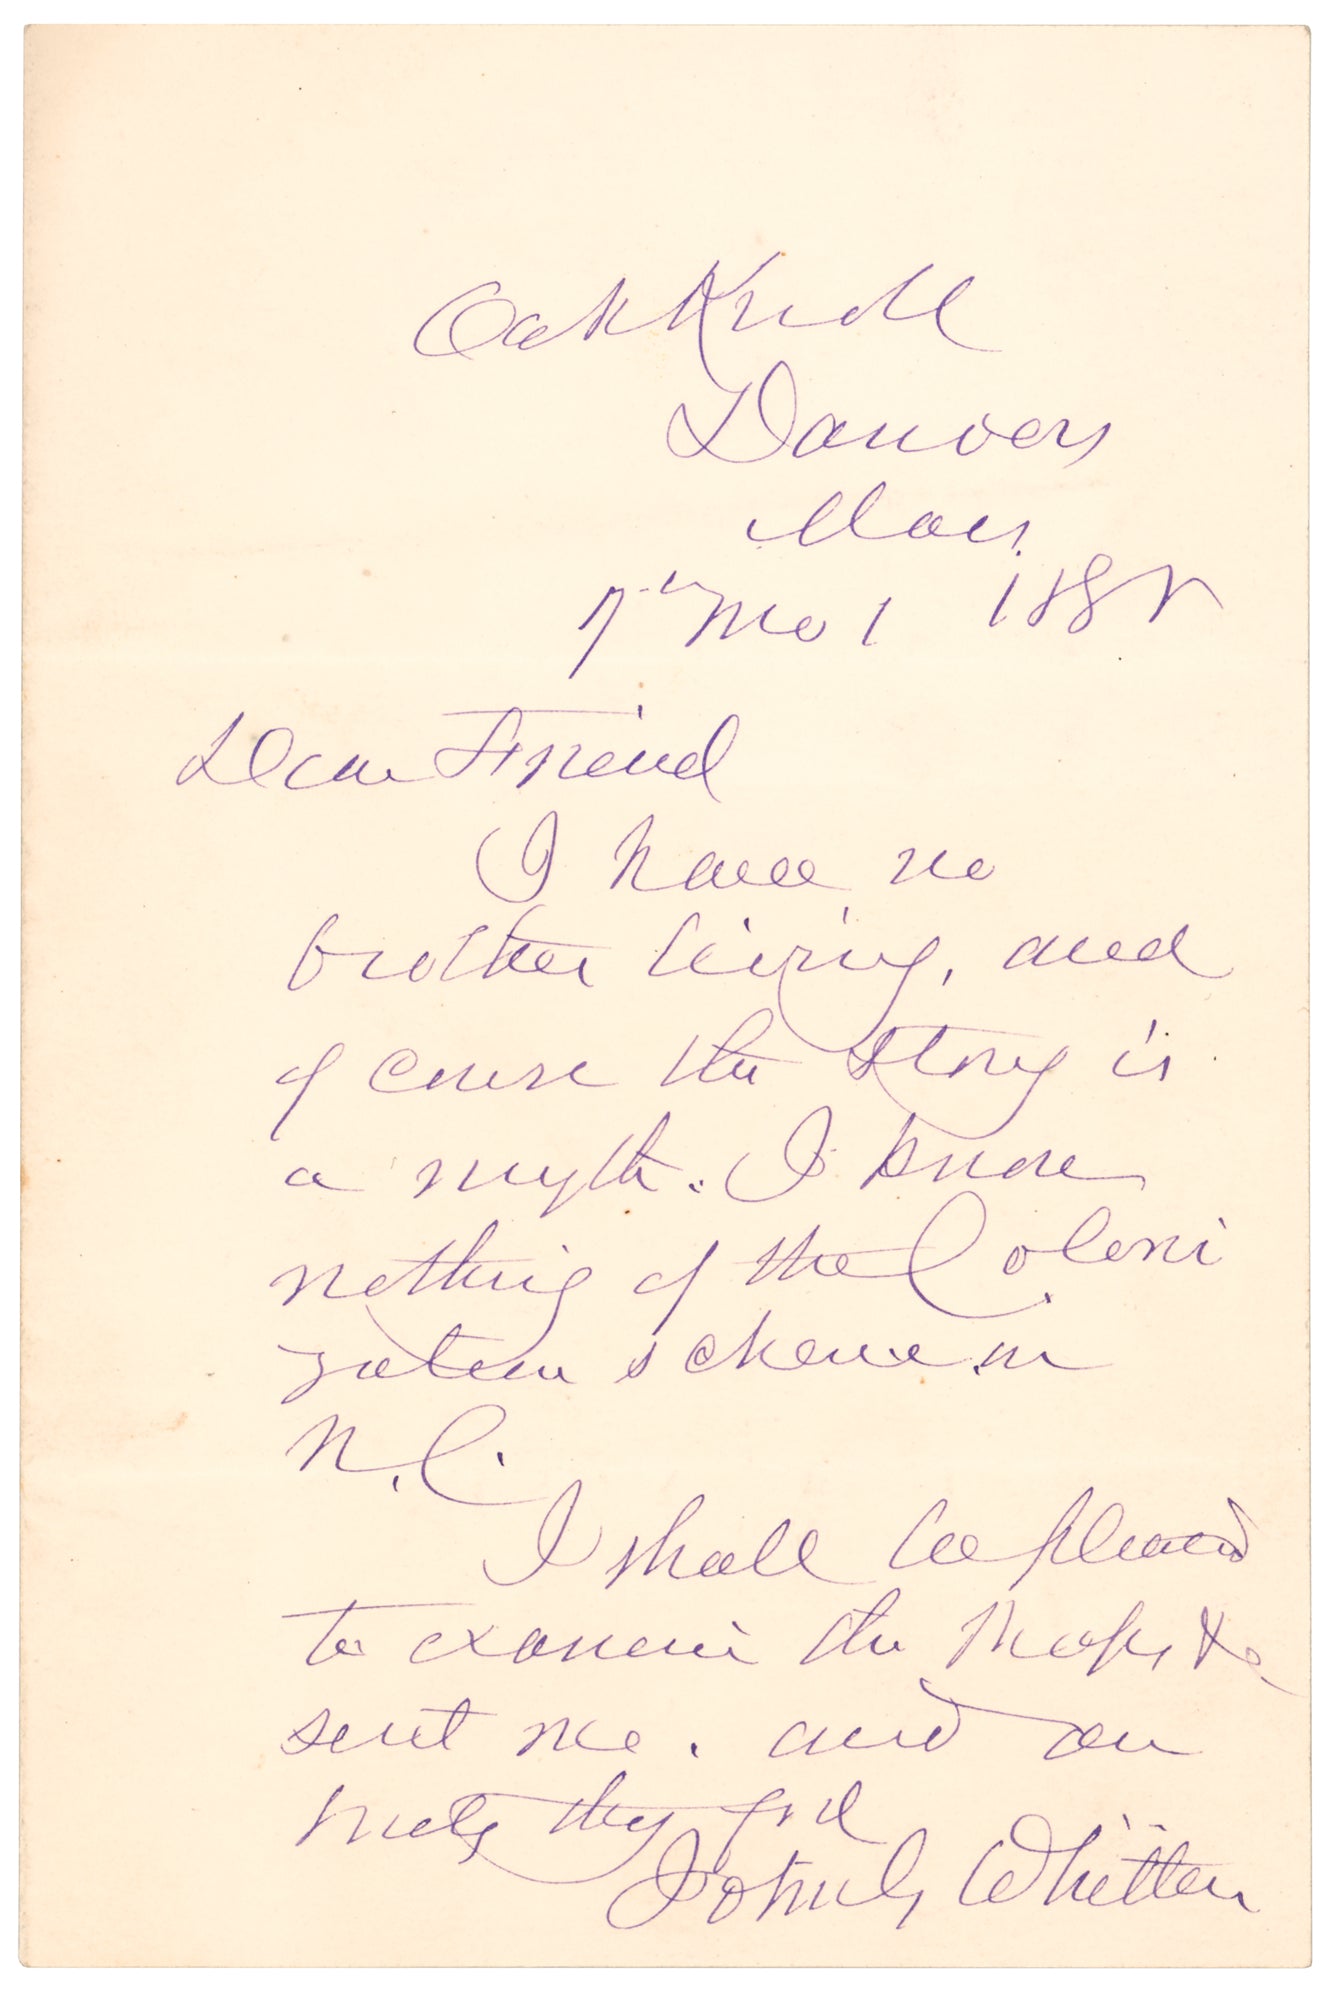 Oak Knoll
Danvers
Mass.
7th Mo 1 188
Dear Friend
I have no
brother living, and
of course the story is
a myth. I know
nothing of the Coloni
zation scheme in
N.C.
I shall be pleased
to examine the Maps &c
sent me. and am
truly thy frd
John G Whittier